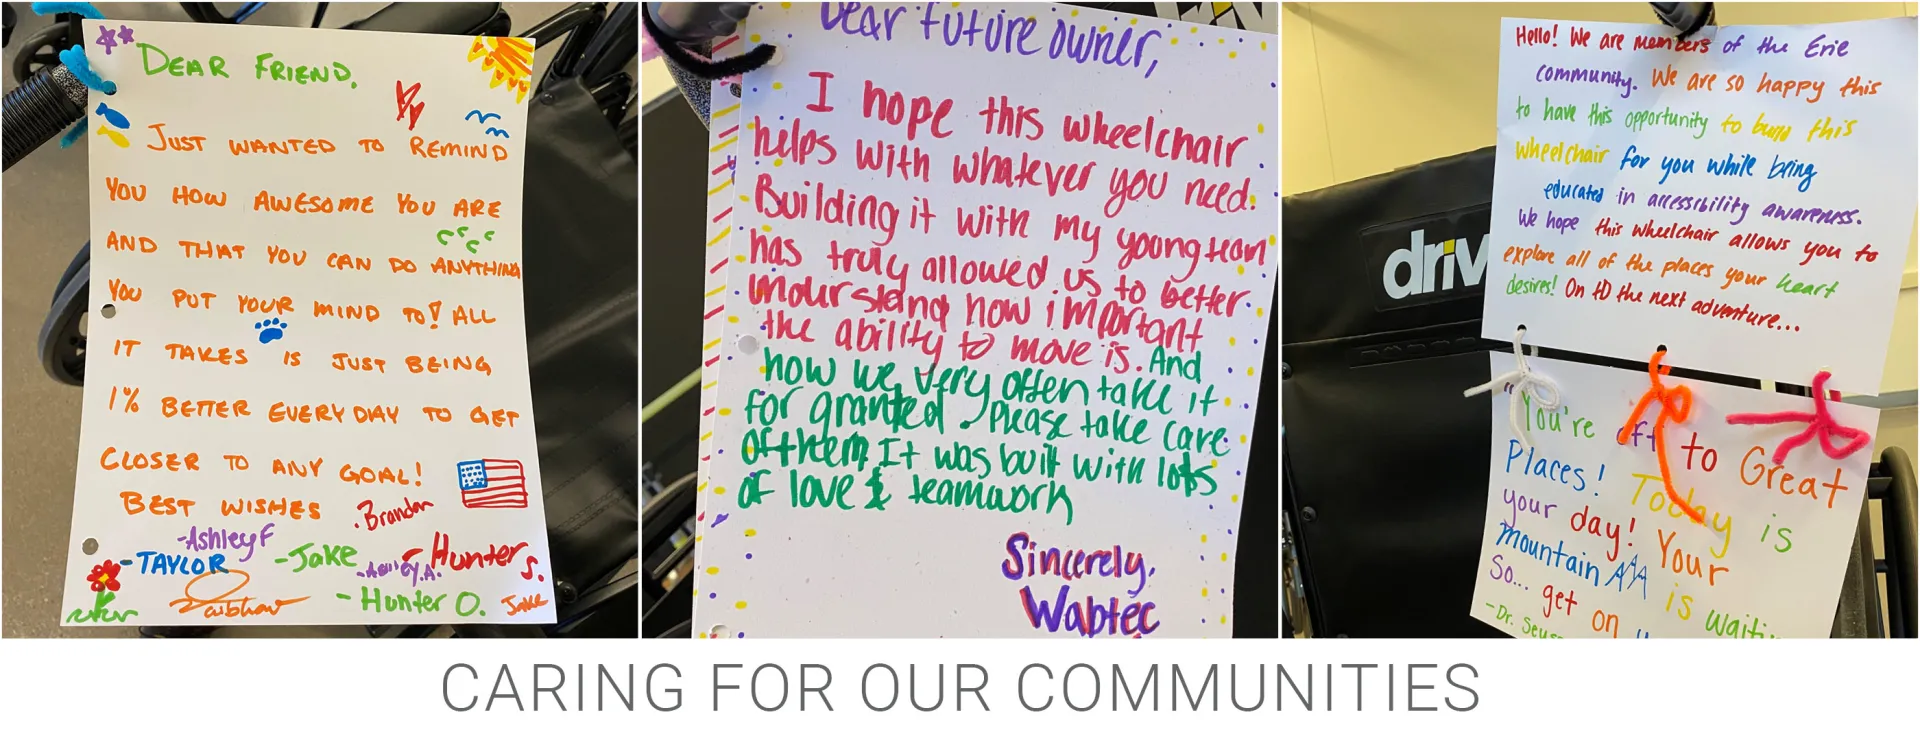 DEAR FRIEND,
JUST WANTED TO REMIND
YOU HOW AWESOME YOU ARE
AND THAT YOU CAN DO ANYTHING
YOU PUT YOUR MIND TO! ALL
IT TAKES IS JUST BEING
1% BETTER EVERYDAY TO GET
CLOSER TO ANY GOAL!
BEST WISHES
.Brandon
-Ashley F
-TAYLOR
-Jake
-Ashley.A.
Hunter S.
-Hunter O.
Jake
Dear future owner,
I hope this wheelchair
helps with whatever you need.
Building it with my young team
has truly allowed us to better
understand how important
the ability to move is. And
how we very often take it
for granted. Please take care
of them It was built with lots
of love & teamwork
Sincerely,
Wabtec
Hello! We are members of the Erie
community. We are so happy this
to have this opportunity to build this
wheelchair for you while being
educated in accessibility awareness.
We hope this wheelchair allows you to
explore all of the places your heart
desires! On to the next adventure...
driv
"You're off to Great
Places! Today is
your day! Your
Mountain is waitin
So... get on
-Dr. Seuss
CARING FOR OUR COMMUNITIES